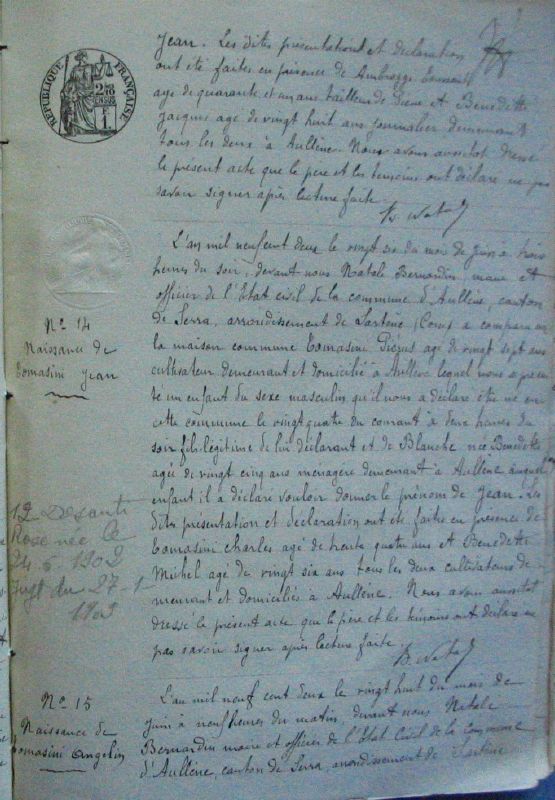 RÉPUBLIQUE FRANÇAISE
Jean. Les dites presentation et declaration
ont été faites en présence de Ambroggi
age de quarante et un ans tailleur de Pierre et Benedetti
Jacques age de vingt huit ans journalier demeurant
tous les deux à Aullène. Nous avons aussitot dresse
le présent acte que le père et les temoins ont déclaré ne pas
savoir signer après lecture faite.
B. Natal
L'an mil neuf cent deux le vingt six du mois de Juin a trois
heures du soir, devant nous Natale Bernardin, maire et
officier de l'Etat civil de la commune d'Aullène, canton
de Serra, arrondissement de Sartène (Corse) a comparu en
la maison commune Tomasini age de vingt sept ans
cultivateur demeurant et domicilié à Aullène lequel nous a presen
té un enfant du sexe masculin qu'il nous a déclaré etre né en
cette commune le vingt quatre du courant à deux heures du
soir fils légitime de lui déclarant et de Blanche née Benedetti
agée de vingt cinq ans menagère demeurant à Aullène auquel
enfant il a déclaré vouloir donner le prénom de Jean. Les
dites presentation et declaration ont été faites en presence de
Tomasini Charles agé de trente quatre ans et Benedetti
Michel agé de vingt six ans tous les deux cultivateurs de-
meurant et domiciliés à Aullène. Nous avons aussitot
dresse le présent acte que le père et les témoins ont déclaré ne
pas savoir signer après lecture faite.
B. Natal
N° 14
Naissance de
Tomasini Jean
12 Desanti
Rose née le
24-6-1902
Jugt du 27-1
1903
N° 15
Naissance de
Tomasini Angelin
L'an mil neuf cent deux le vingt huit du mois de
Juin à neuf heures du matin, devant nous Natale
Bernardin maire et officier de l'Etat Civil de la commune
d'Aullène, canton de Serra, arrondissement de Sartène